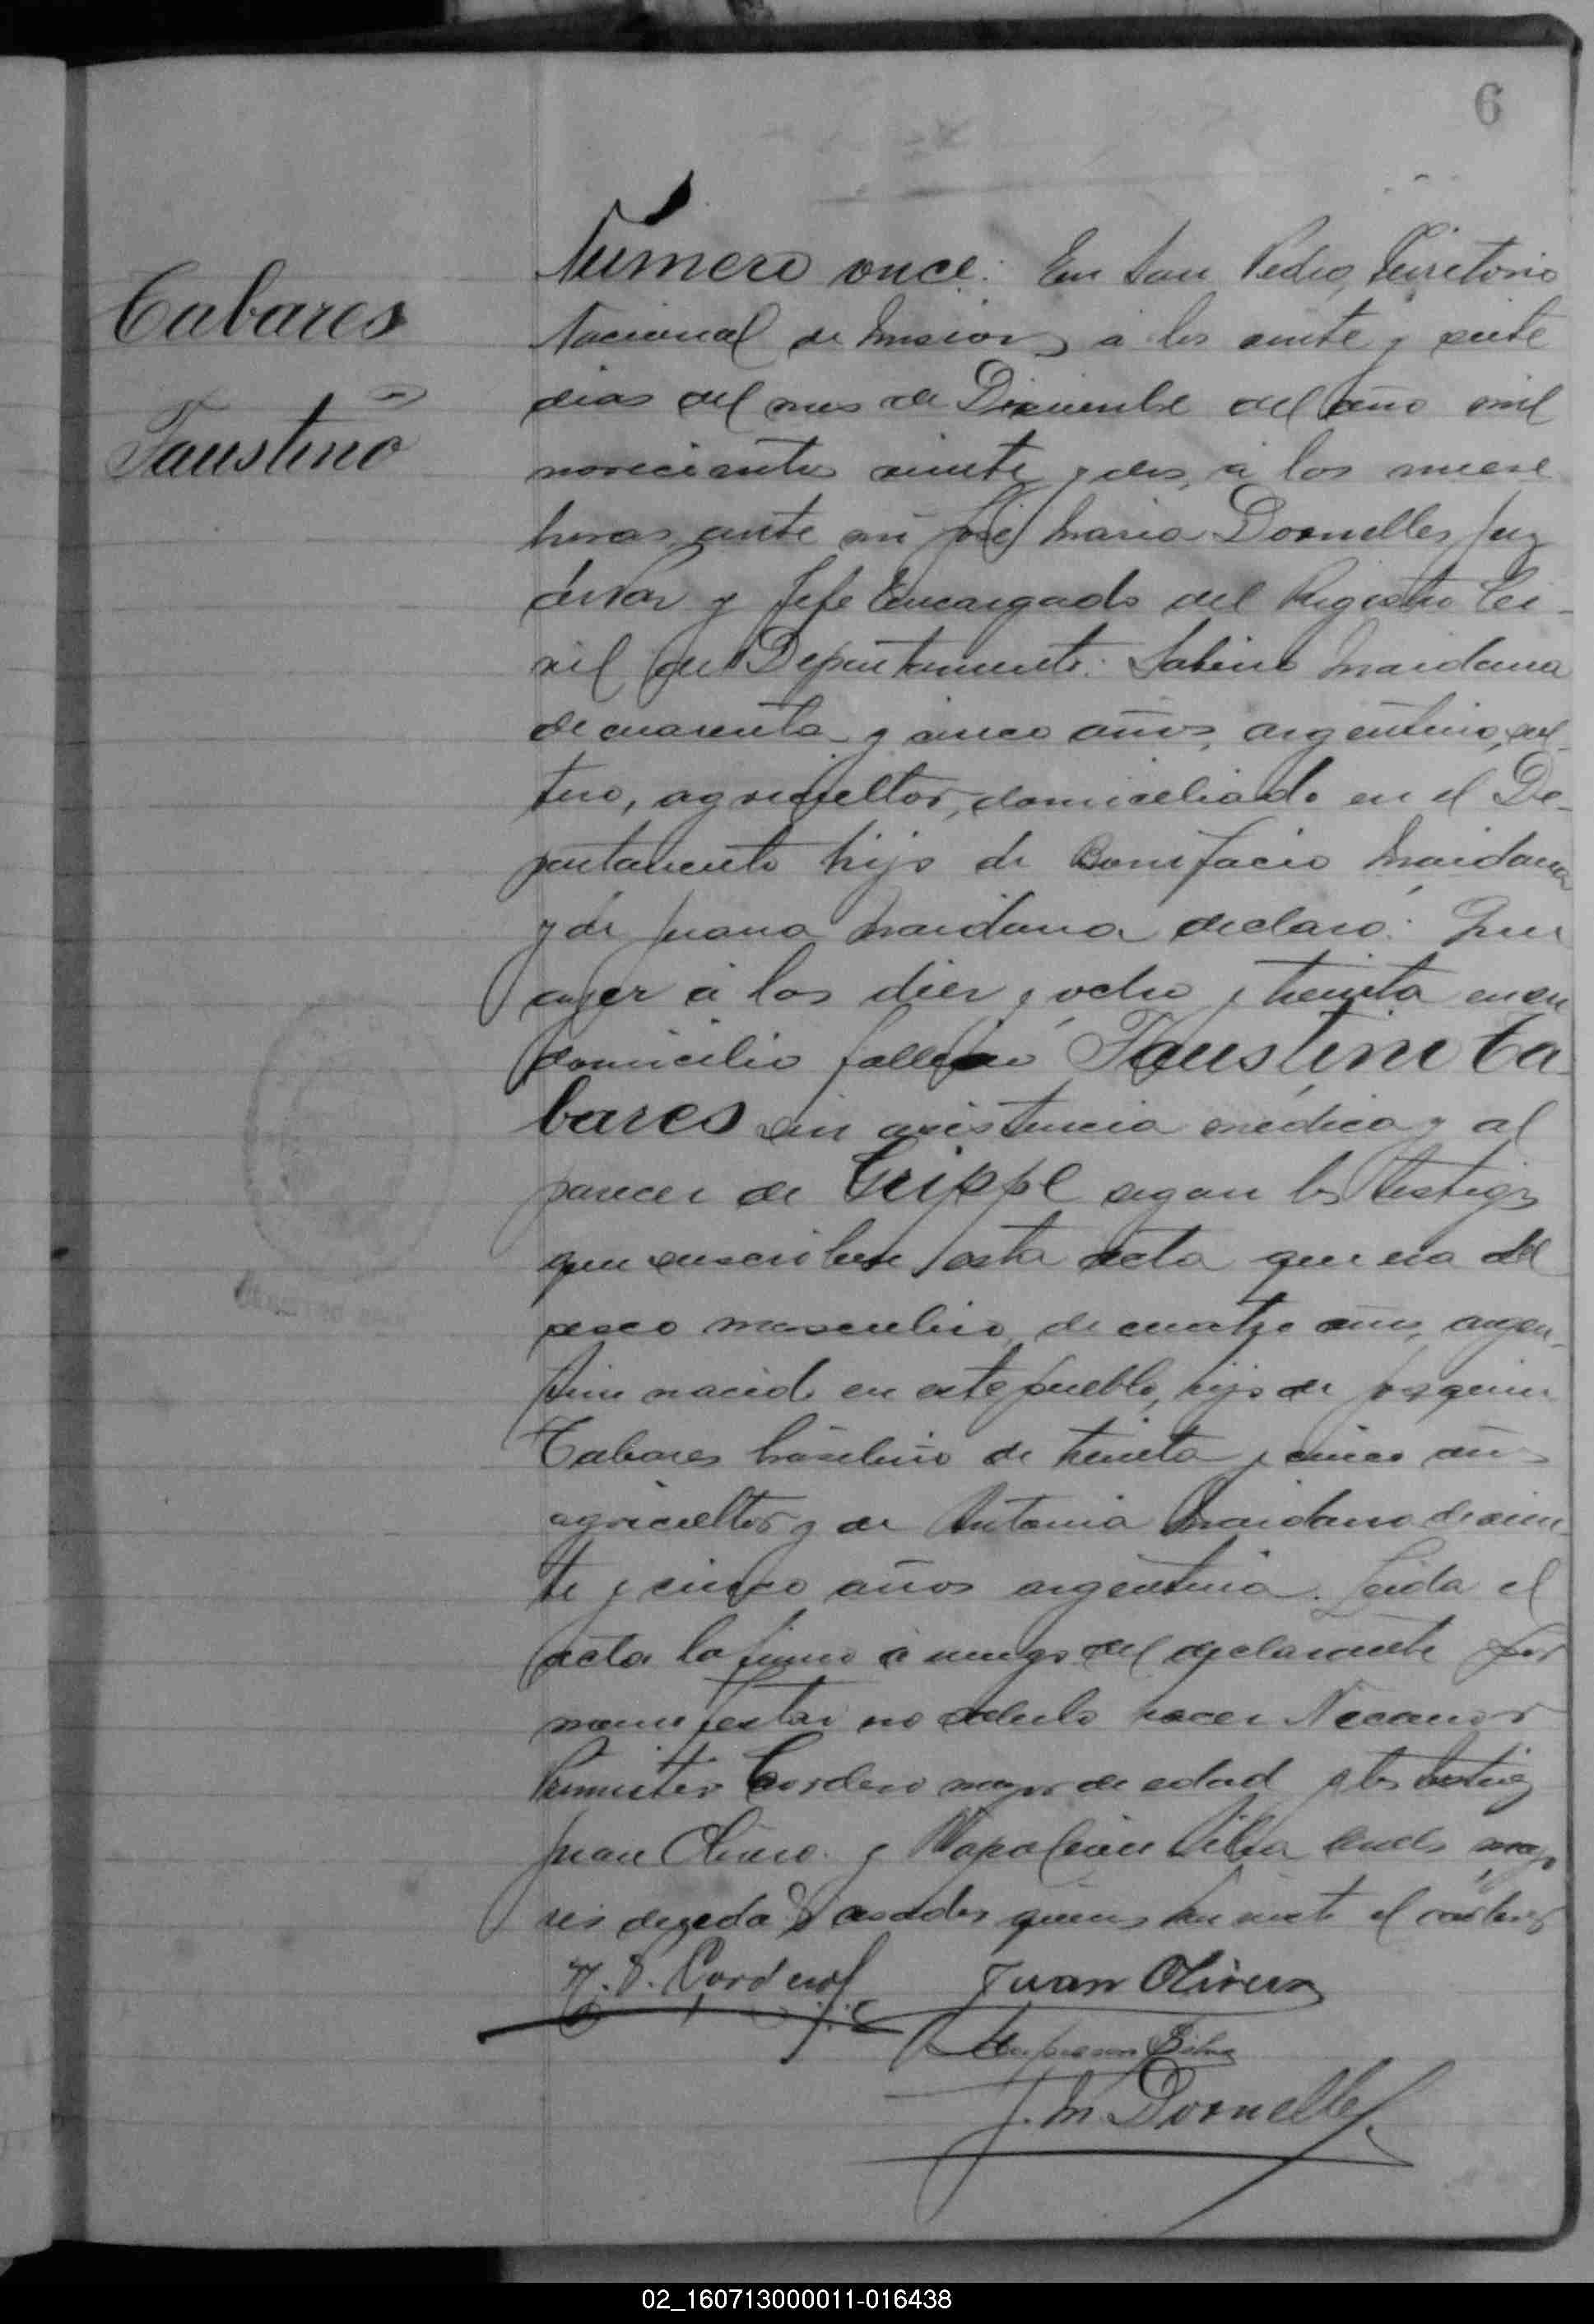 6
Cabares
Faustino
Número once: En San Pedro, Territorio
Nacional de Misiones a los veinte y siete
dias del mes de Diciembre del año mil
novecientos veinte y dos, á las nueve
horas, ante mi José Maria Dornelles Juez
de Paz y Jefe Encargado del Registro Ci-
vil del Departamento: Sabino Maidana
de cuarenta y cinco años, argentino, sol-
tero, agricultor, domiciliado en el De-
partamento hijo de Bonifacio Maidana
y de Juana Maidana declaró: Que
ayer á las diez y ocho y treinta en su
domicilio falleció Faustino Ca
bares sin asistencia médica y al
parecer de Grippe segun los testigos
que suscriben esta acta que era del
sexo masculino, de cuatro años, argen-
tino nacido en este pueblo, hijo de Joaquin
Cabares brasilero de treinta y cinco años
agricultor y de Antonia Maidana de vein-
te y cinco años argentina. Leida el
acta la firmo á ruego del declarante por
manifestar no saberlo hacer Nicanor
Cordero mayor de edad y los testigos
Juan Olivera y Napoleón Silva mayo
res de edad casados quienes han visto el cadaver
N. S. Cordero Juan Olivera
Napoleon Silva
J. M. Dornelles
02_160713000011-016438